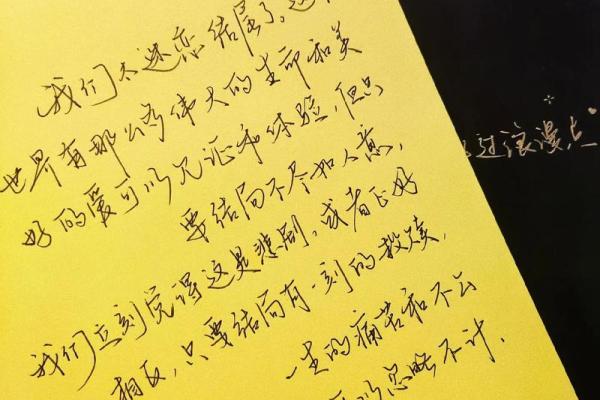 我们太迷恋结局了,这
世界有那么多伟大的生命和美
好的爱可以见证和体验,但只
要结局不尽如人意,
我们立刻觉得这是悲剧,或者正好
相反,只要结局有一刻的救赎,
一生的痛苦和不公
可以忽略不计.
过浪漫点